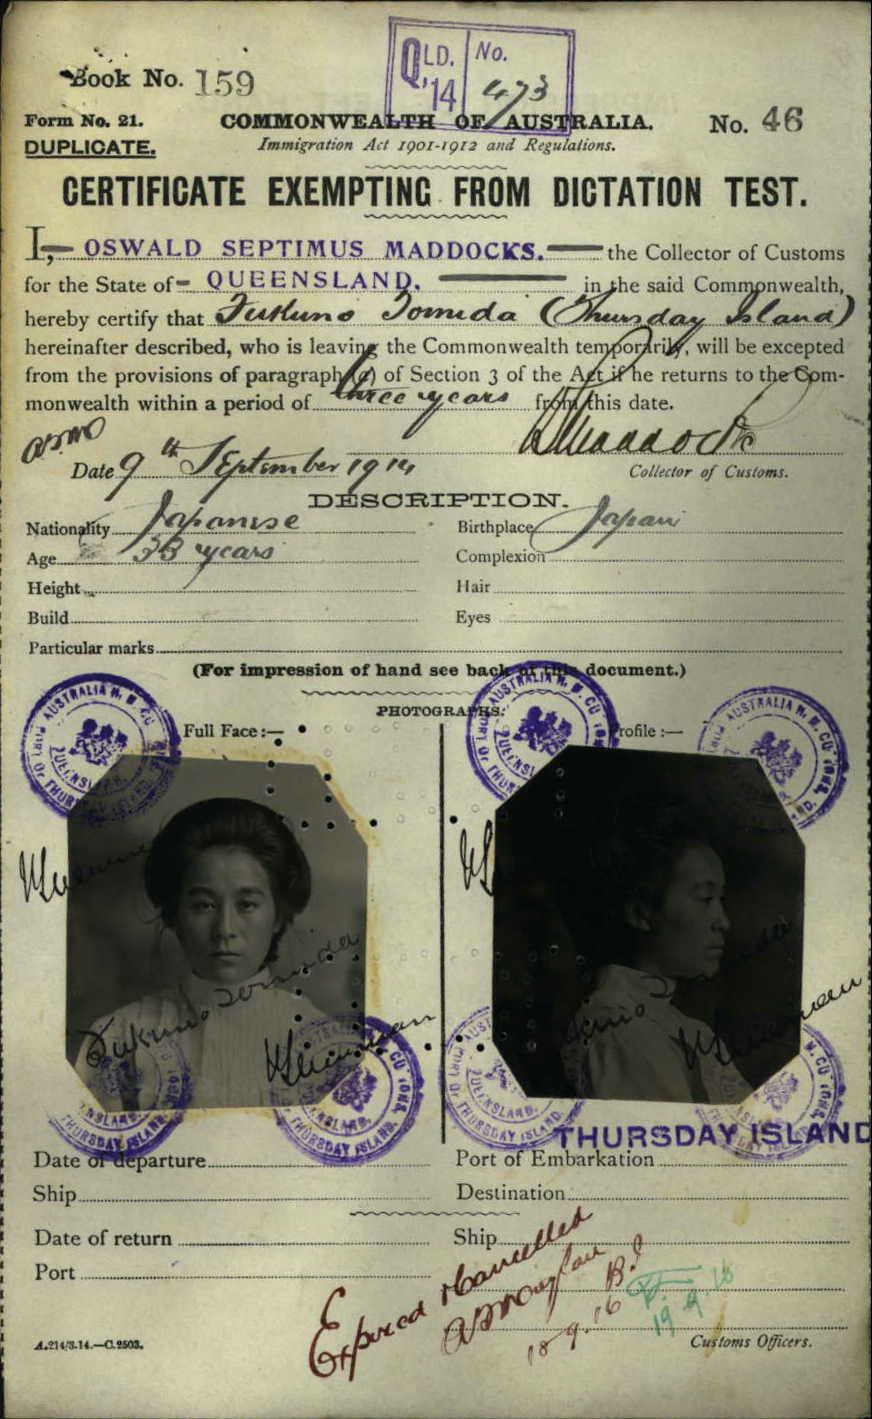 QLD. No.
'14 473
Book No. 159
Form No. 21.
COMMONWEALTH OF AUSTRALIA.
No. 46
DUPLICATE.
Immigration Act 1901-1912 and Regulations.
CERTIFICATE EXEMPTING FROM DICTATION TEST.
I, OSWALD SEPTIMUS MADDOCKS. the Collector of Customs
for the State of QUEENSLAND. in the said Commonwealth,
hereby certify that Fukuno Tomida (Thursday Island)
hereinafter described, who is leaving the Commonwealth temporarily, will be excepted
from the provisions of paragraph (a) of Section 3 of the Act if he returns to the Com-
monwealth within a period of three years from this date.
Date 9th September 1914
Collector of Customs.
DESCRIPTION.
Nationality Japanese
Birthplace Japan
Age 33 years
Complexion
Height
Hair
Build
Eyes
Particular marks
(For impression of hand see back of this document.)
PHOTOGRAPHS.
Full Face :—
Profile :—
Fukuno Tomida
THURSDAY ISLAND
Date of departure
Port of Embarkation
Ship
Destination
Date of return
Ship
Port
Expired & Cancelled
18-9-16
19.9.16
A.214/3.14.—C.2503.
Customs Officers.